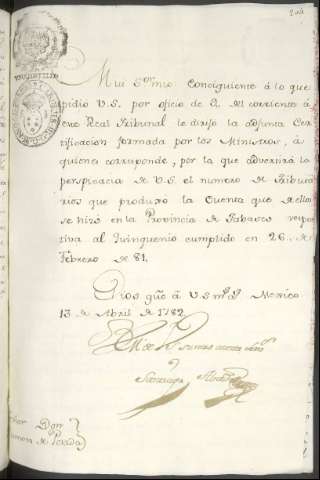 Mui S.or mio Consiguiente á lo que
pidio V.S. por oficio de 2. del corriente á
este Real Tribunal le dirijo la adjunta Cer
tificacion formada por los Ministros, á
quienes corresponde, por la que advertirá la
perspicacia de V.S. el numero de Tributa
rios que produxo la Cuenta que de ellos
se hizo en la Provincia de Tabasco respec
tiva al Quinquenio cumplido en 26. de
Febrero de 81.
Dios gũe á V.S. m.s a.s Mexico
13 de Abril de 1782.
Santiago
Señor Don
Ramon de Posada